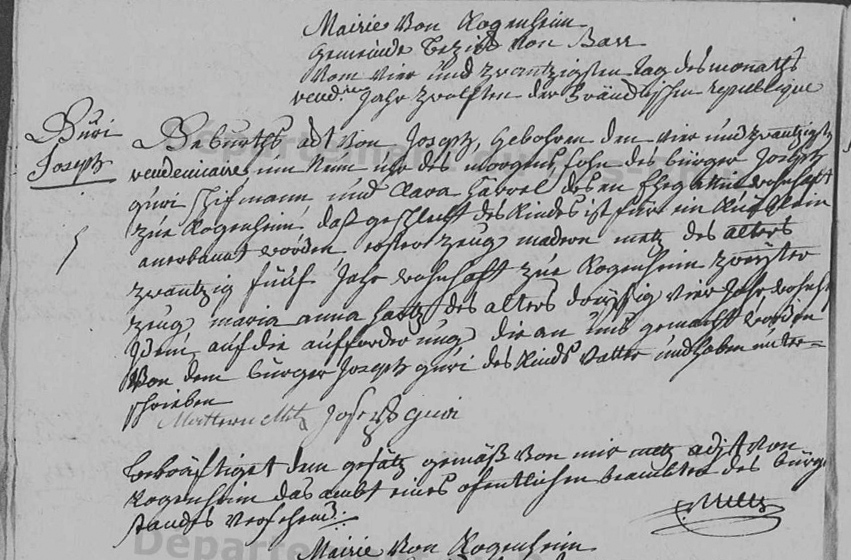 Mairie Von Kogenheim
gemeinde bezirk Von Barr
Vom vier und zwantzigsten tag des monaths
vend.re Jahr zwölften der fränckischen republique
Guri
Joseph
5
Geburths act Von Joseph, gebohren den vier und zwantzigst
vendemiaire um Neun uhr des morgens sohn des bürger Joseph
guri schifmann und Klara des en Ehegattin wohnhaft
zue Kogenheim, das geschlecht des Kindes ist für ein
anerkannt worden erster zeug madern metz des alters
zwantzig fünf Jahr wohnhaft zue Kogenheim zweyter
zeug maria anna hartz des alters dreyssig vier Jahr, wohnh
auf die aufforderung die an uns gemacht worden
Von dem burger Joseph guri des Kinds Vatter und haben unter=
schrieben
Mattern Metz Joseph guri
bekräftiget dem gesätz gemäß Von mir metz adjt Von
Kogenheim das ambt eines öfentlichen beambten des bürger
standes Versehend:
Metz
Mairie Von Kogenheim
Département